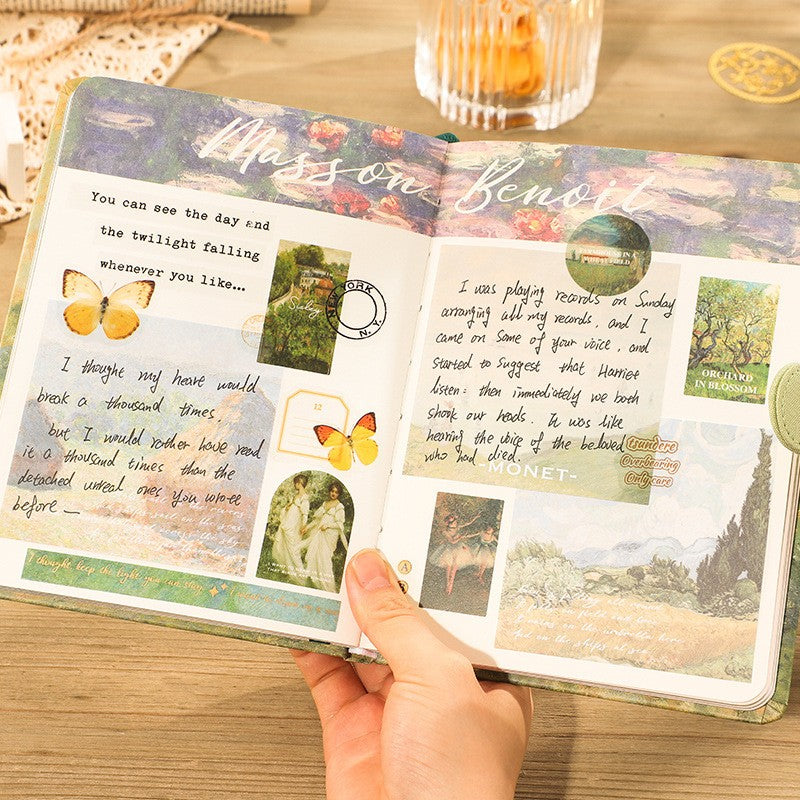 Masson Benoit
You can see the day and
the twilight falling
whenever you like...
NEW YORK
N.Y.
12
I thought my heave would
break a thousand times,
but I would rother have read
it a thousand times than the
detached unreal ones you wrote
before —
I thought keep the light you can stay
I was playing records on Sunday
arranging all my records, and I
came on some of your voice, and
started to suggest that Harriet
listen: then immediately we both
shook our heads. It was like
hearing the voice of the beloved
who had died.
-MONET-
tsundere
Overbearing
Only care
IN A
ORCHARD
IN BLOSSOM
A